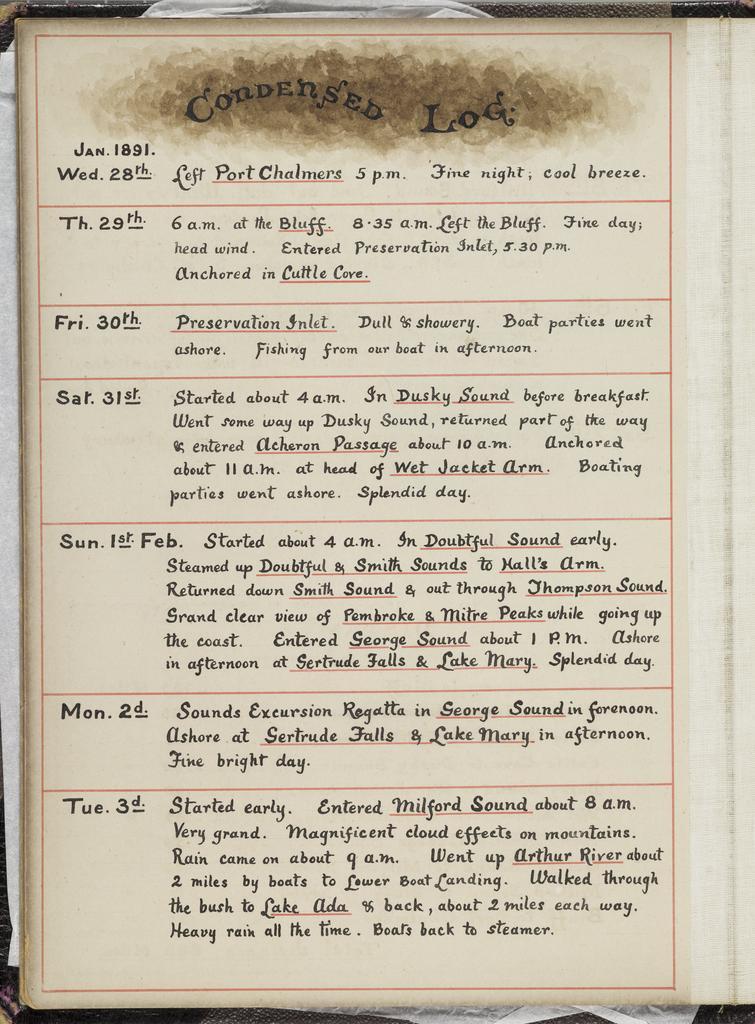 Condensed Log.
Jan. 1891.
Wed. 28th. Left Port Chalmers 5 p.m. Fine night; cool breeze.
Th. 29th. 6 a.m. at the Bluff. 8·35 a.m. Left the Bluff. Fine day;
head wind. Entered Preservation Inlet, 5.30 p.m.
Anchored in Cuttle Cove.
Fri. 30th. Preservation Inlet. Dull & showery. Boat parties went
ashore. Fishing from our boat in afternoon.
Sat. 31st. Started about 4 a.m. In Dusky Sound before breakfast.
Went some way up Dusky Sound, returned part of the way
& entered Acheron Passage about 10 a.m. Anchored
about 11 a.m. at head of Wet Jacket Arm. Boating
parties went ashore. Splendid day.
Sun. 1st. Feb. Started about 4 a.m. In Doubtful Sound early.
Steamed up Doubtful & Smith Sounds to Hall's Arm.
Returned down Smith Sound & out through Thompson Sound.
Grand clear view of Pembroke & Mitre Peaks while going up
the coast. Entered George Sound about 1 P.M. Ashore
in afternoon at Gertrude Falls & Lake Mary. Splendid day.
Mon. 2d. Sounds Excursion Regatta in George Sound in forenoon.
Ashore at Gertrude Falls & Lake Mary in afternoon.
Fine bright day.
Tue. 3d. Started early. Entered Milford Sound about 8 a.m.
Very grand. Magnificent cloud effects on mountains.
Rain came on about 9 a.m. Went up Arthur River about
2 miles by boats to Lower Boat Landing. Walked through
the bush to Lake Ada & back, about 2 miles each way.
Heavy rain all the time. Boats back to steamer.